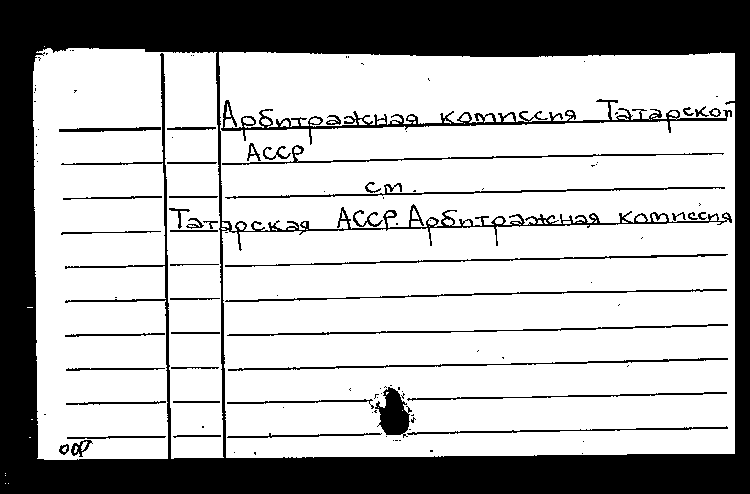 Арбитражная комиссия Татарской
АССР
см.
Татарская АССР. Арбитражная комиссия